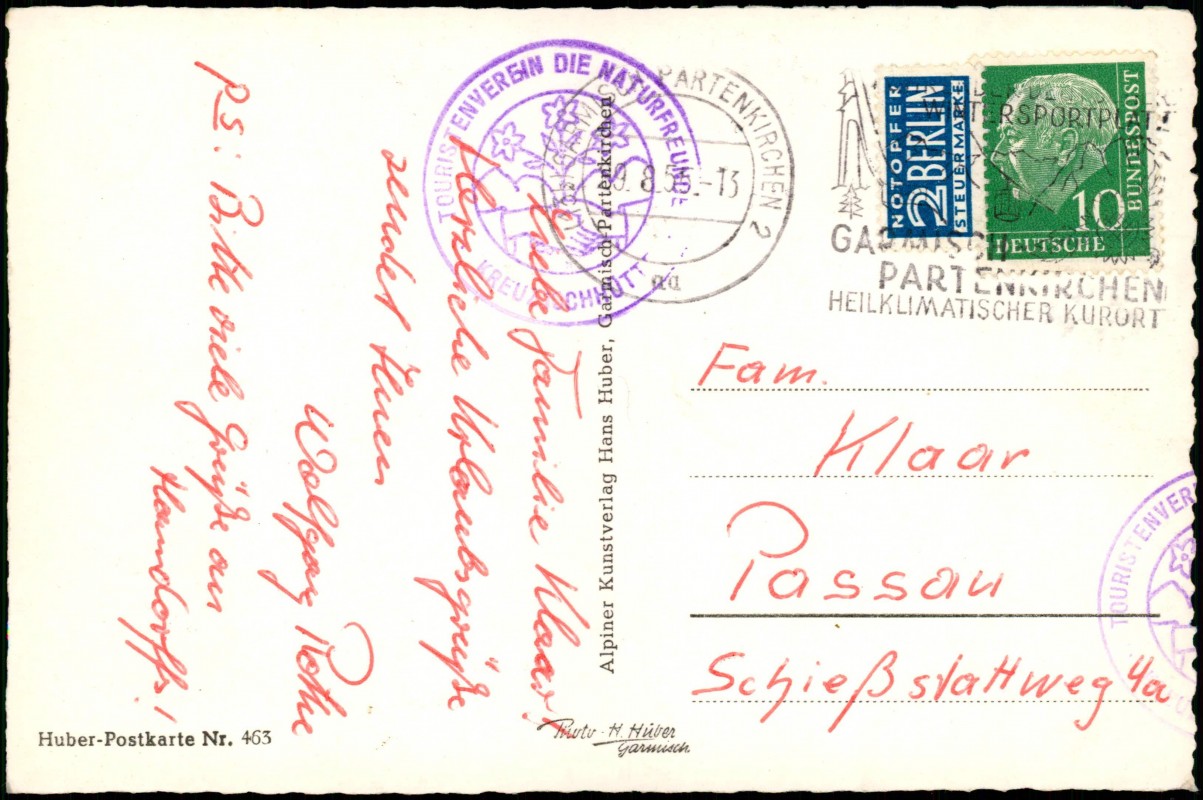 Liebe Familie Klaar!
Herzliche Urlaubsgrüße
sendet Ihnen
Wolfgang Rothe
PS: Bitte viele Grüße an
Handorffs!
TOURISTENVEREIN DIE NATURFREUNDE
KREUZECKHÜTTE
GARMISCH-PARTENKIRCHEN 2
9.8.55.-13
aa
NOTOPFER
2 BERLIN
STEUERMARKE
10
DEUTSCHE
BUNDESPOST
WINTERSPORTPLATZ
GARMISCH
PARTENKIRCHEN
HEILKLIMATISCHER KURORT
Alpiner Kunstverlag Hans Huber, Garmisch-Partenkirchen
Fam.
Klaar
Passau
Schießstattweg 4a
TOURISTENVER
Huber-Postkarte Nr. 463
Photo-H. Huber
Garmisch